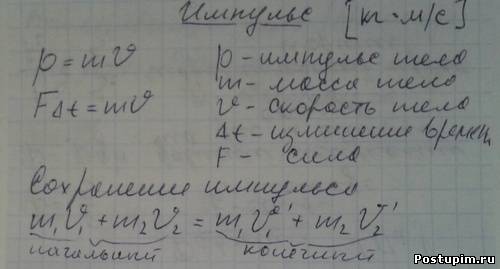 Импульс [кг·м/с]
p = mυ p - импульс тела
m - масса тела
FΔt = mυ υ - скорость тела
Δt - изменение времени
F - сила
Сохранение импульса
m₁υ₁ + m₂υ₂ = m₁υ₁' + m₂υ₂'
начальный конечный
Postupim.ru